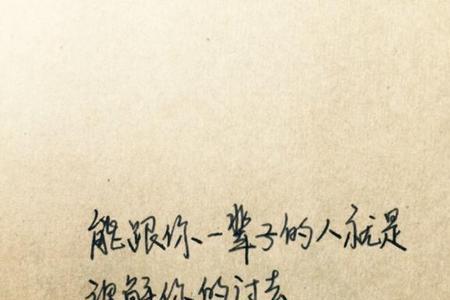 能跟你一辈子的人就是
理解你的过去